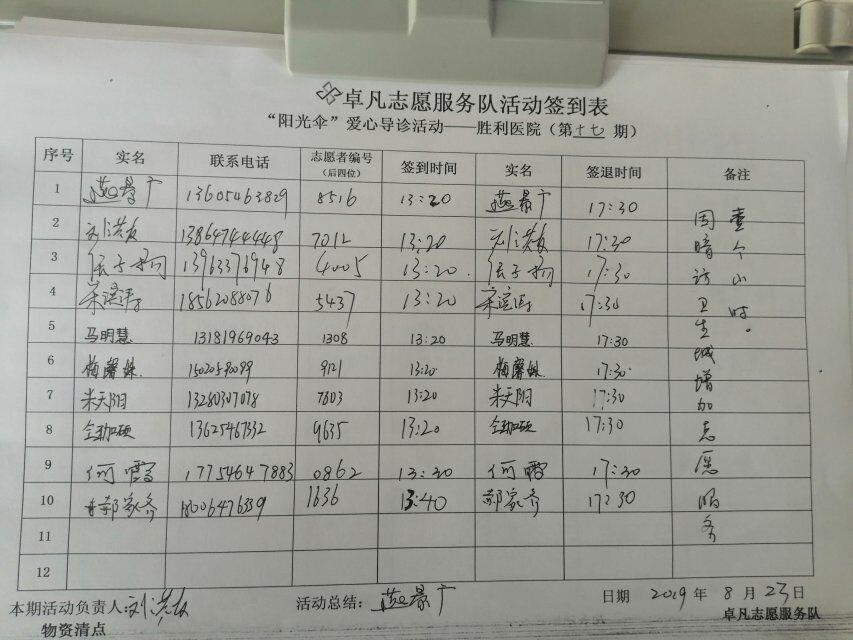 卓凡志愿服务队活动签到表
“阳光伞”爱心导诊活动——胜利医院（第十七期）
序号 实名 联系电话 志愿者编号（后四位） 签到时间 实名 签退时间 备注
1 燕景广 13605463829 8516 13:20 燕景广 17:30
2 刘洪友 13864744448 7012 13:20 刘洪友 17:30
3 伍子 13963376948 4005 13:20 伍子 17:30
4 宋 18562088076 5437 13:20 宋 17:30
5 马明慧 13181969043 1308 13:20 马明慧 17:30
6 梅馨妹 15020590099 9121 13:20 梅馨妹 17:30
7 朱天阳 13280307078 7803 13:20 朱天阳 17:30
8 13625467332 9635 13:20 17:30
9 何雪 17754647883 0862 13:30 何雪 17:30
10 郝家齐 18006476339 1636 13:40 郝家齐 17:30
11
12
因暗访卫生城增加志愿服务
壹个小时。
本期活动负责人:刘洪友 活动总结：燕景广 日期 2019年8月23日
物资清点 卓凡志愿服务队